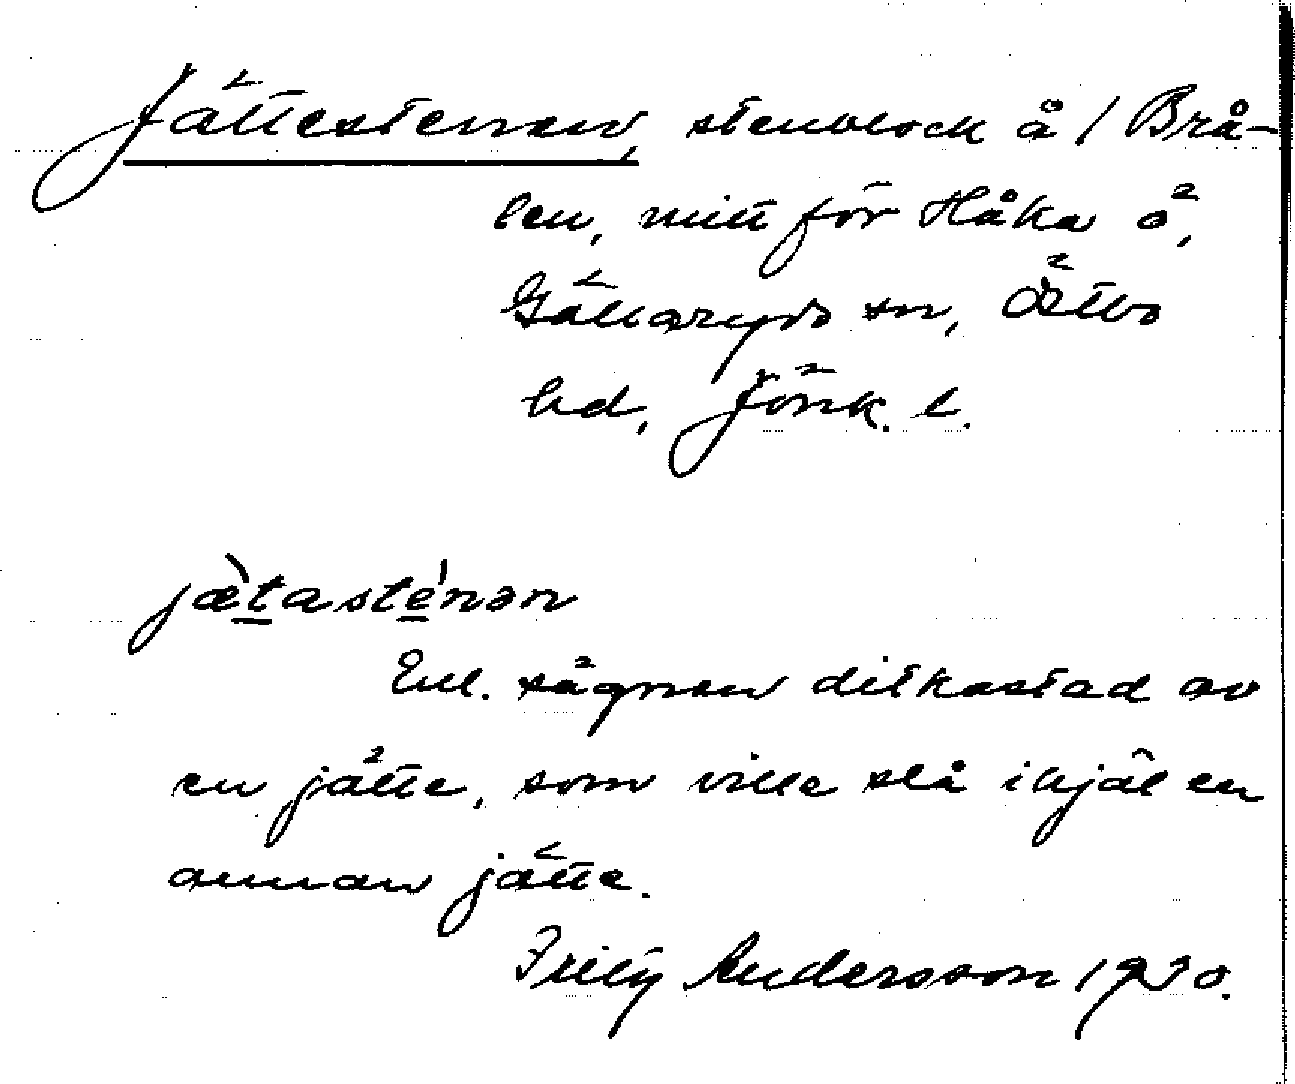 Jättestenen, stenblock å l Brå-
len, mitt för Håka ö,
Gällaryds sn, Östbo
hd, Jönk. l.
jæ̀tasténən
Enl. sägnen ditkastad av
en jätte, som ville slå ihjäl en
annan jätte.
Andersson 1930.